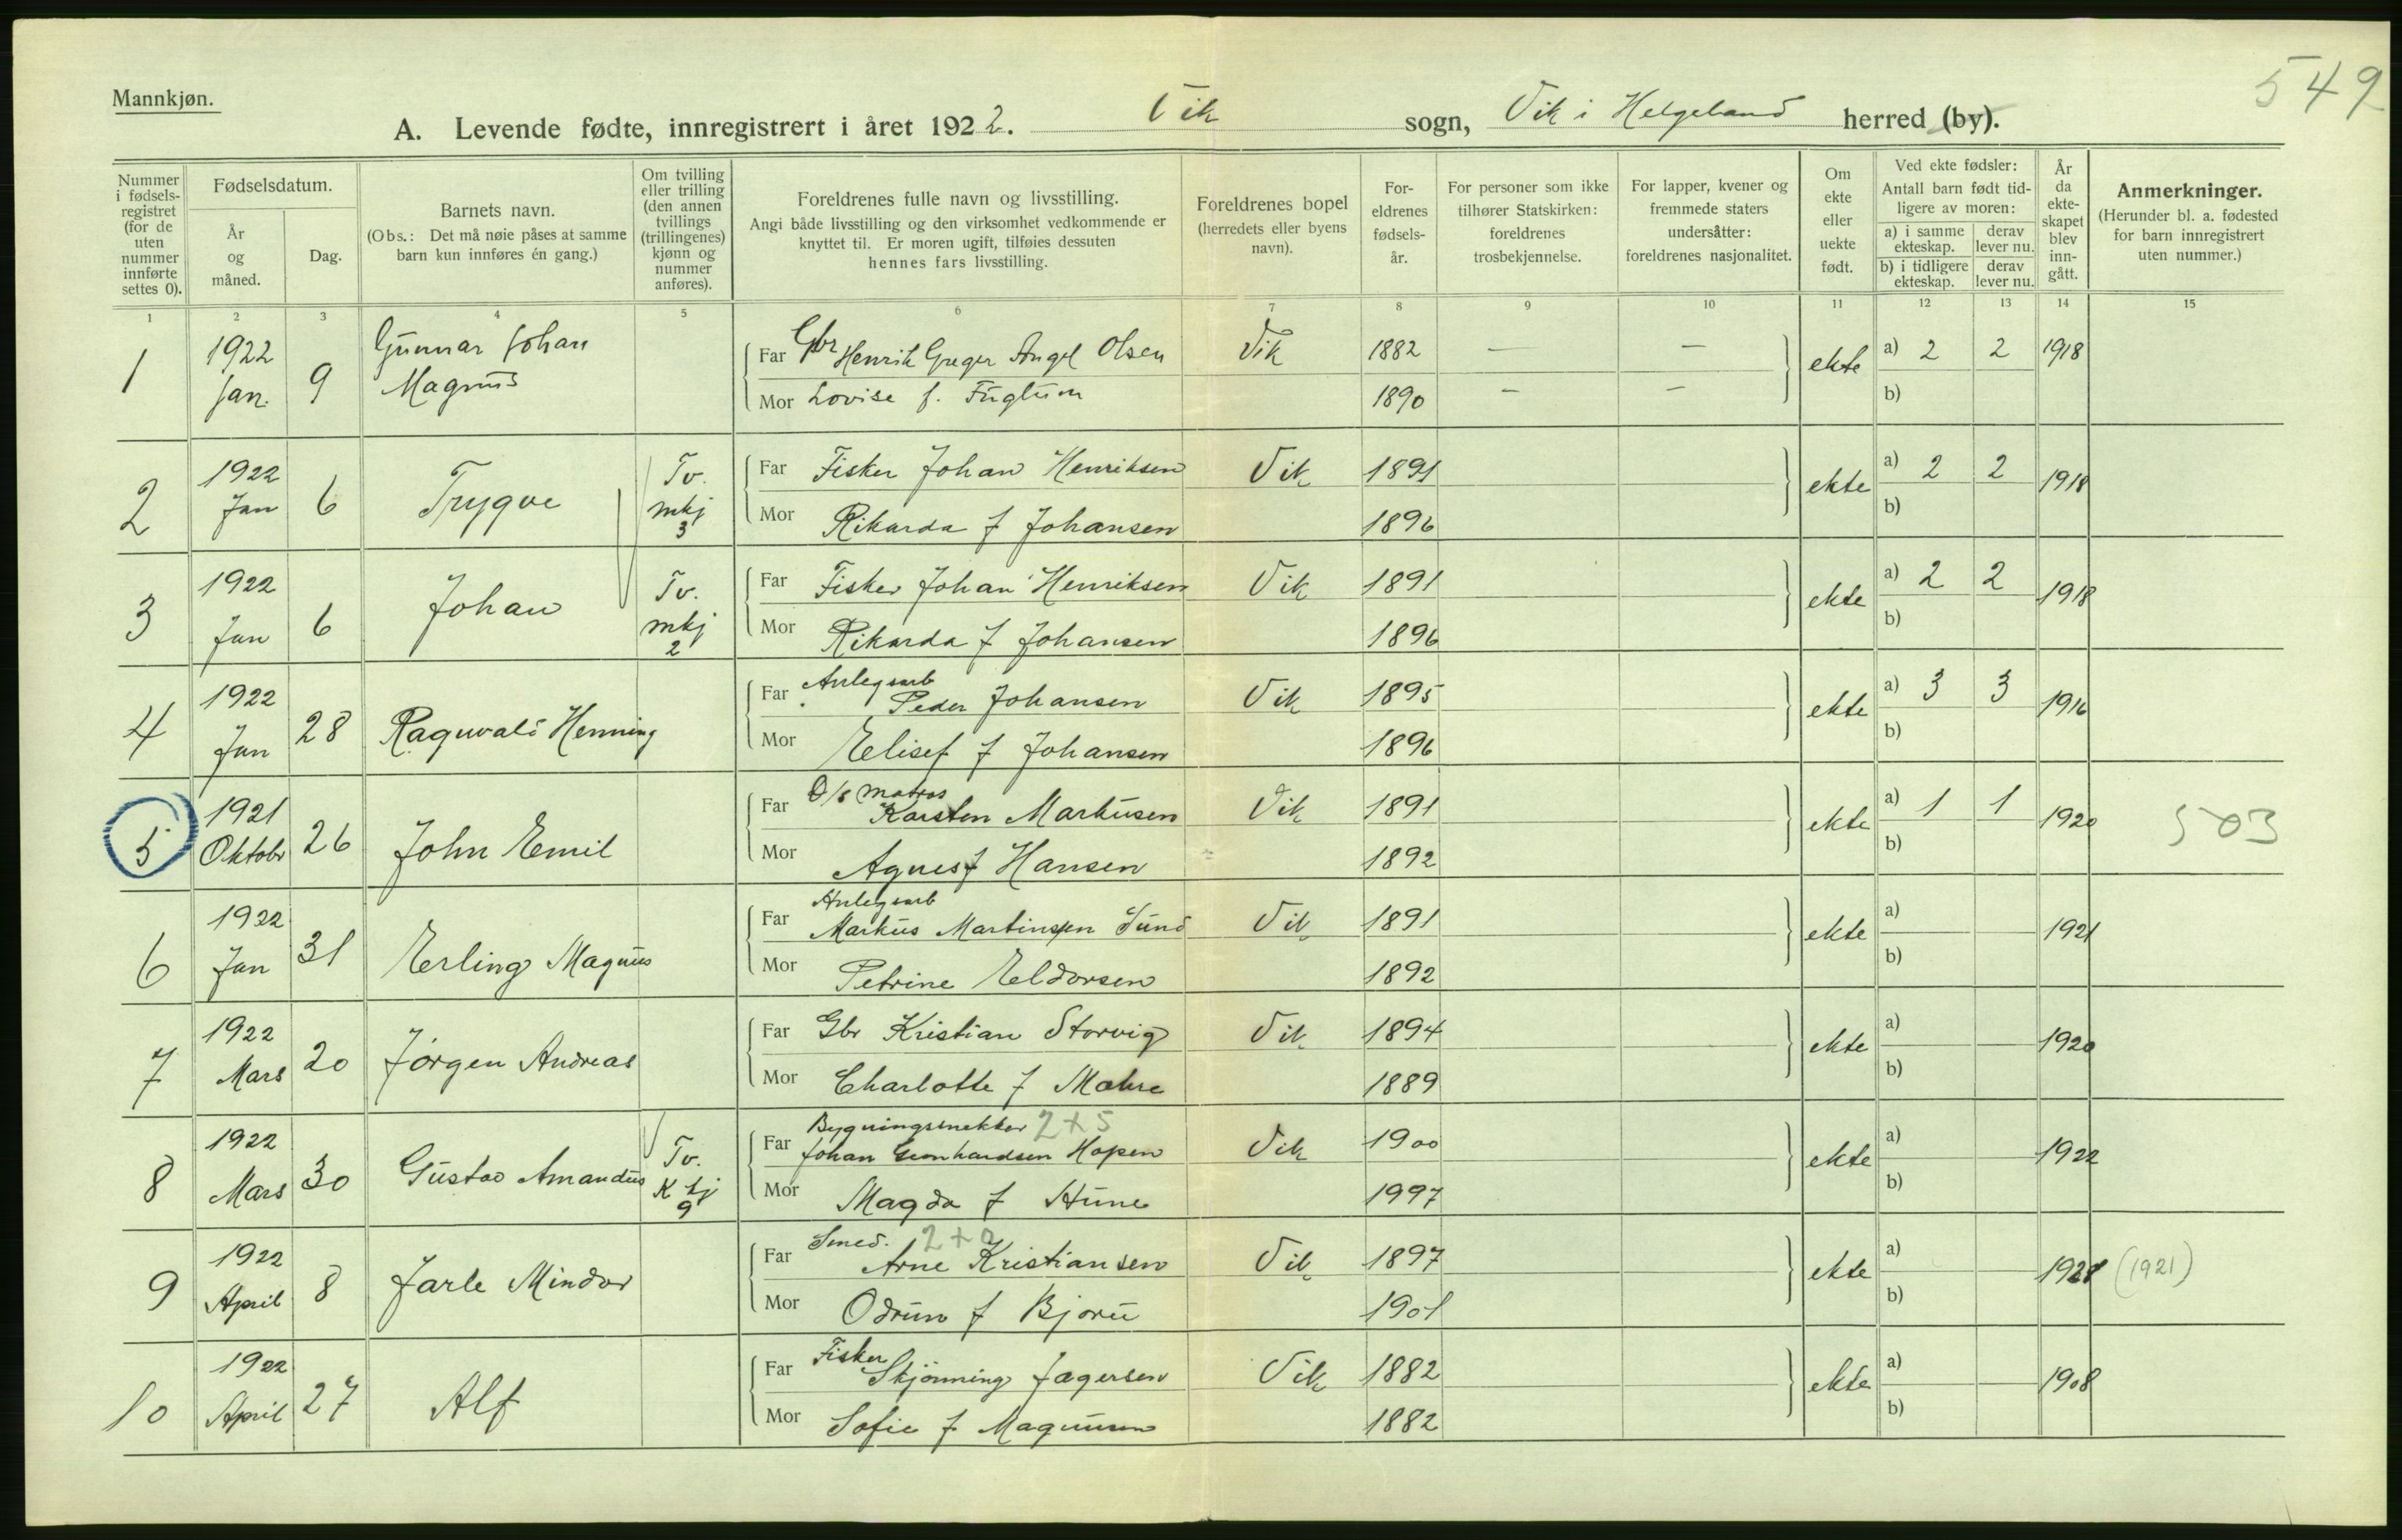 549
Mannkjøn.
A. Levende fødte, innregistrert i året 1922. Vik sogn, Vik i Helgeland herred (by).
Nummer i fødselsregistret (for de uten nummer innførte settes 0).
Fødselsdatum.
År og måned.
Dag.
Barnets navn.
(Obs.: Det må nøie påses at samme barn kun innføres én gang.)
Om tvilling eller trilling (den annen tvillings (trillingenes) kjønn og nummer anføres).
Foreldrenes fulle navn og livsstilling.
Angi både livsstilling og den virksomhet vedkommende er knyttet til. Er moren ugift, tilføies dessuten hennes fars livsstilling.
Foreldrenes bopel (herredets eller byens navn).
Foreldrenes fødselsår.
For personer som ikke tilhører Statskirken: foreldrenes trosbekjennelse.
For lapper, kvener og fremmede staters undersåtter: foreldrenes nasjonalitet.
Om ekte eller uekte født.
Ved ekte fødsler:
Antall barn født tidligere av moren:
a) i samme ekteskap. derav lever nu.
b) i tidligere ekteskap. derav lever nu.
År da ekteskapet blev inngått.
Anmerkninger.
(Herunder bl. a. fødested for barn innregistrert uten nummer.)
1 2 3 4 5 6 7 8 9 10 11 12 13 14 15
1 1922 Jan. 9 Gunnar Johan Magnus
Far Gbr Henrik Greger Angel Olsen Vik 1882 — — ekte a) 2 2 1918
Mor Lovise f. Fuglum 1890 — — b)
2 1922 Jan 6 Trygve Tv. mkj 3
Far Fisker Johan Henriksen Vik 1891 ekte a) 2 2 1918
Mor Rikarda f Johansen 1896 b)
3 1922 Jan 6 Johan Tv. mkj 2
Far Fisker Johan Henriksen Vik 1891 ekte a) 2 2 1918
Mor Rikarda f Johansen 1896 b)
4 1922 Jan 28 Ragnvald Henning
Far Anlegsarb Peder Johansen Vik 1895 ekte a) 3 3 1916
Mor Elisef f Johansen 1896 b)
5 1921 Oktobr 26 John Emil
Far D/s matros Karsten Markusen Vik 1891 ekte a) 1 1 1920 503
Mor Agnes f Hansen 1892 b)
6 1922 Jan 31 Erling Magnus
Far Anlegsarb Markus Martinsen Sund Vik 1891 ekte a) 1921
Mor Petrine Eldorsen 1892 b)
7 1922 Mars 20 Jörgen Andreas
Far Gbr Kristian Storvig Vik 1894 ekte a) 1920
Mor Charlotte f 1889 b)
8 1922 Mars 30 Gustav Amandus Tv. K kj 9
Far Bygningssnekker 2+5 Johan Hopen Vik 1900 ekte a) 1922
Mor Magda f 1997 b)
9 1922 April 8 Jarle Mindor
Far Smed. 2+0 Arne Kristiansen Vik 1897 ekte a) 1921 (1921)
Mor Odrun f Bjoru 1901 b)
10 1922 April 27 Alf
Far Fisker Skjönning Jagersen Vik 1882 ekte a) 1908
Mor Sofie f. Magnusen 1882 b)